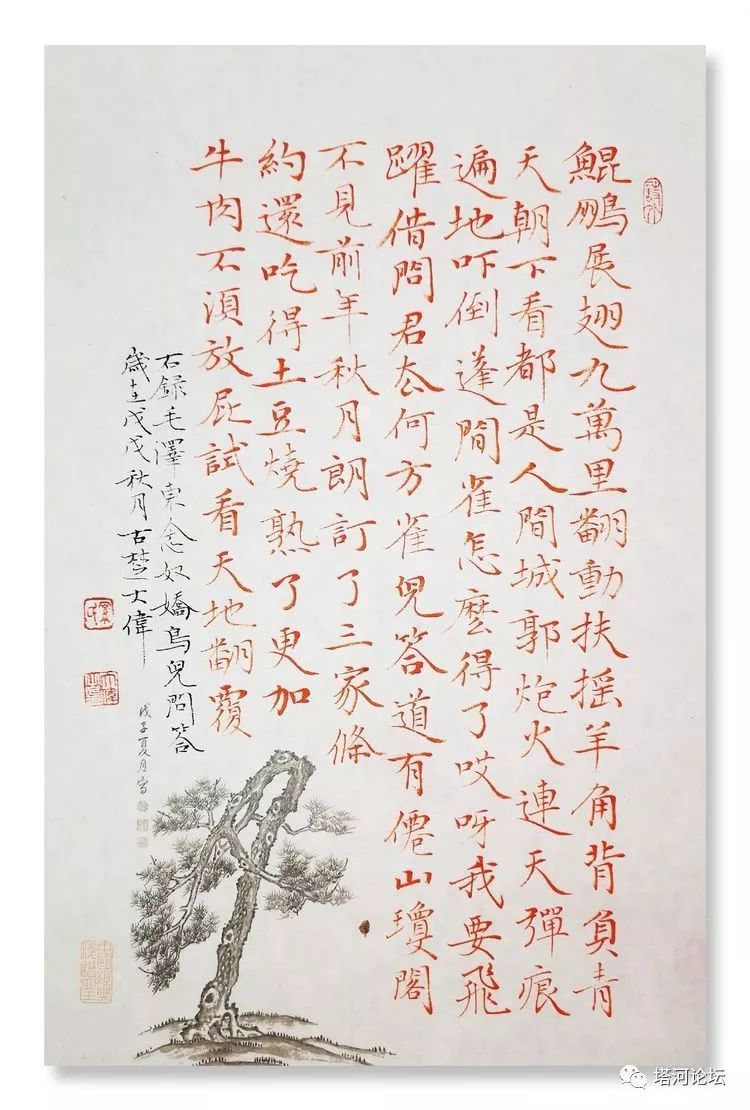 鯤鵬展翅九萬里翻動扶摇羊角背負青
天朝下看都是人間城郭炮火連天彈痕
遍地吓倒蓬間雀怎麼得了哎呀我要飛
躍借問君去何方雀兒答道有僊山瓊閣
不見前年秋月朗訂了三家條
約還吃得土豆燒熟了更加
牛肉不須放屁試看天地翻覆
右録毛澤東念奴嬌鳥兒問答
歲在戊戌秋月古楚大偉
戊子夏月寫
塔河论坛